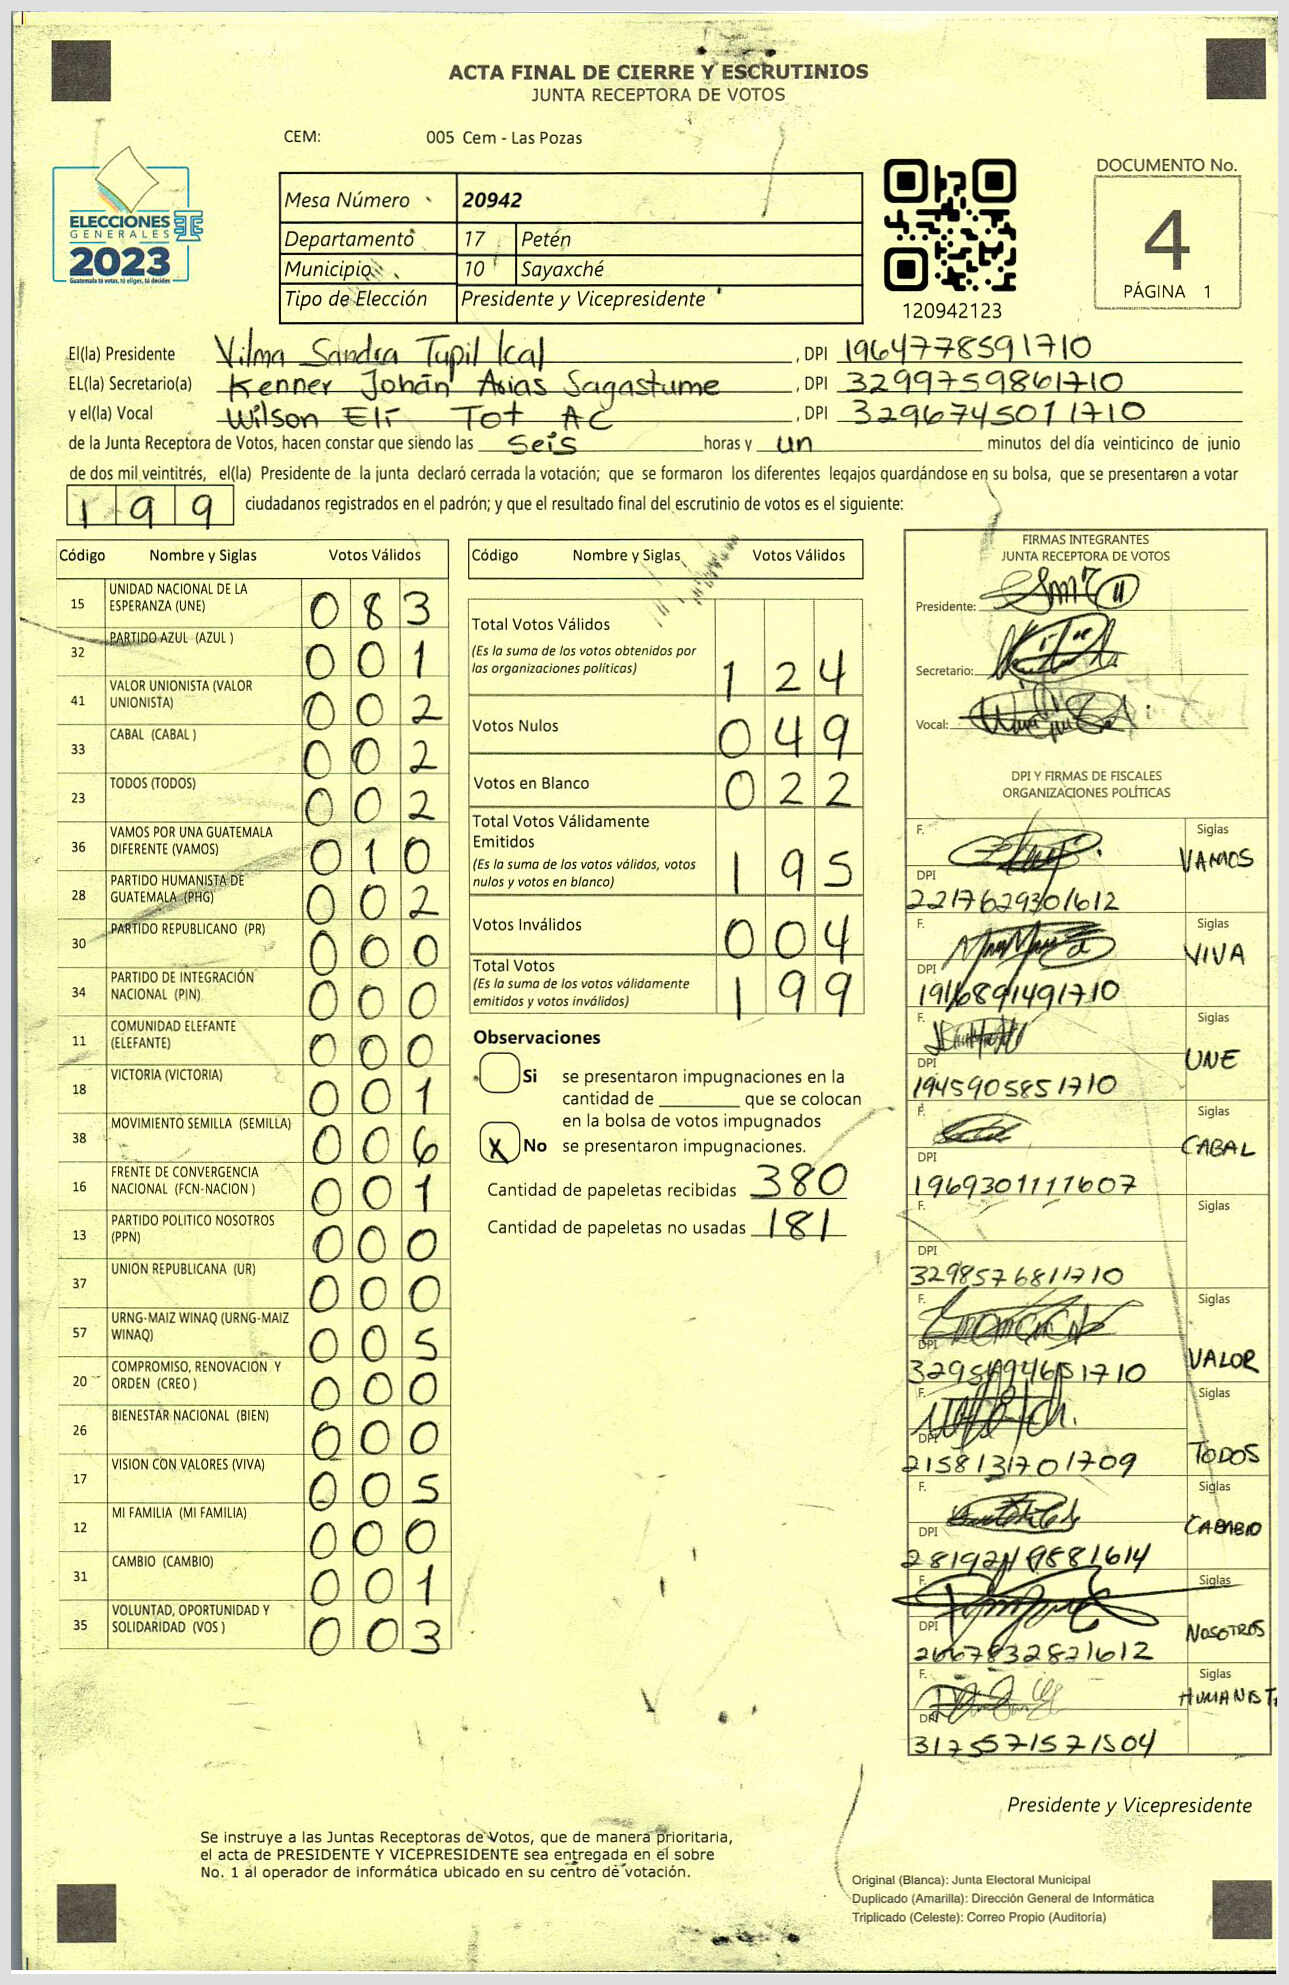 ACTA FINAL DE CIERRE Y ESCRUTINIOS
JUNTA RECEPTORA DE VOTOS
CEM: 005 Cem - Las Pozas
ELECCIONES
GENERALES
2023
Guatemala tú votas, tú eliges, tú decides
Mesa Número 20942
Departamento 17 Petén
Municipio 10 Sayaxché
Tipo de Elección Presidente y Vicepresidente
120942123
DOCUMENTO No.
4
PÁGINA 1
El(la) Presidente Vilma Sandra Tupil Ical , DPI 1964778591710
EL(la) Secretario(a) Kenner Johán Arias Sagastume , DPI 3299759861710
y el(la) Vocal Wilson Elí Tot AC , DPI 3296745011710
de la Junta Receptora de Votos, hacen constar que siendo las seis horas y un minutos del día veinticinco de junio
de dos mil veintitrés, el(la) Presidente de la junta declaró cerrada la votación; que se formaron los diferentes legajos guardándose en su bolsa, que se presentaron a votar
199 ciudadanos registrados en el padrón; y que el resultado final del escrutinio de votos es el siguiente:
Código Nombre y Siglas Votos Válidos
15 UNIDAD NACIONAL DE LA ESPERANZA (UNE) 083
32 PARTIDO AZUL (AZUL ) 001
41 VALOR UNIONISTA (VALOR UNIONISTA) 002
33 CABAL (CABAL ) 002
23 TODOS (TODOS) 002
36 VAMOS POR UNA GUATEMALA DIFERENTE (VAMOS) 010
28 PARTIDO HUMANISTA DE GUATEMALA (PHG) 002
30 PARTIDO REPUBLICANO (PR) 000
34 PARTIDO DE INTEGRACIÓN NACIONAL (PIN) 000
11 COMUNIDAD ELEFANTE (ELEFANTE) 000
18 VICTORIA (VICTORIA) 001
38 MOVIMIENTO SEMILLA (SEMILLA) 006
16 FRENTE DE CONVERGENCIA NACIONAL (FCN-NACION ) 001
13 PARTIDO POLITICO NOSOTROS (PPN) 000
37 UNION REPUBLICANA (UR) 000
57 URNG-MAIZ WINAQ (URNG-MAIZ WINAQ) 005
20 COMPROMISO, RENOVACION Y ORDEN (CREO ) 000
26 BIENESTAR NACIONAL (BIEN) 000
17 VISION CON VALORES (VIVA) 005
12 MI FAMILIA (MI FAMILIA) 000
31 CAMBIO (CAMBIO) 001
35 VOLUNTAD, OPORTUNIDAD Y SOLIDARIDAD (VOS ) 003
Código Nombre y Siglas Votos Válidos
Total Votos Válidos 124
(Es la suma de los votos obtenidos por
las organizaciones políticas)
Votos Nulos 049
Votos en Blanco 022
Total Votos Válidamente
Emitidos 195
(Es la suma de los votos válidos, votos
nulos y votos en blanco)
Votos Inválidos 004
Total Votos 199
(Es la suma de los votos válidamente
emitidos y votos inválidos)
Observaciones
Si se presentaron impugnaciones en la
cantidad de ________ que se colocan
en la bolsa de votos impugnados
X No se presentaron impugnaciones.
Cantidad de papeletas recibidas 380
Cantidad de papeletas no usadas 181
FIRMAS INTEGRANTES
JUNTA RECEPTORA DE VOTOS
Presidente:
Secretario:
Vocal:
DPI Y FIRMAS DE FISCALES
ORGANIZACIONES POLÍTICAS
F. Siglas
VAMOS
DPI
2217629301612
F. Siglas
VIVA
DPI
1916891491710
F. Siglas
UNE
DPI
1945905851710
F. Siglas
CABAL
DPI
1969301111607
F. Siglas
DPI
3298576811710
F. Siglas
VALOR
DPI
F. Siglas
TODOS
DPI
2158131701709
F. Siglas
DPI
F. Siglas
NOSOTROS
DPI
2667832821612
F. Siglas
HUMANIST
DPI
3175571571504
Presidente y Vicepresidente
Se instruye a las Juntas Receptoras de Votos, que de manera prioritaria,
el acta de PRESIDENTE Y VICEPRESIDENTE sea entregada en el sobre
No. 1 al operador de informática ubicado en su centro de votación.
Original (Blanca): Junta Electoral Municipal
Duplicado (Amarilla): Dirección General de Informática
Triplicado (Celeste): Correo Propio (Auditoría)